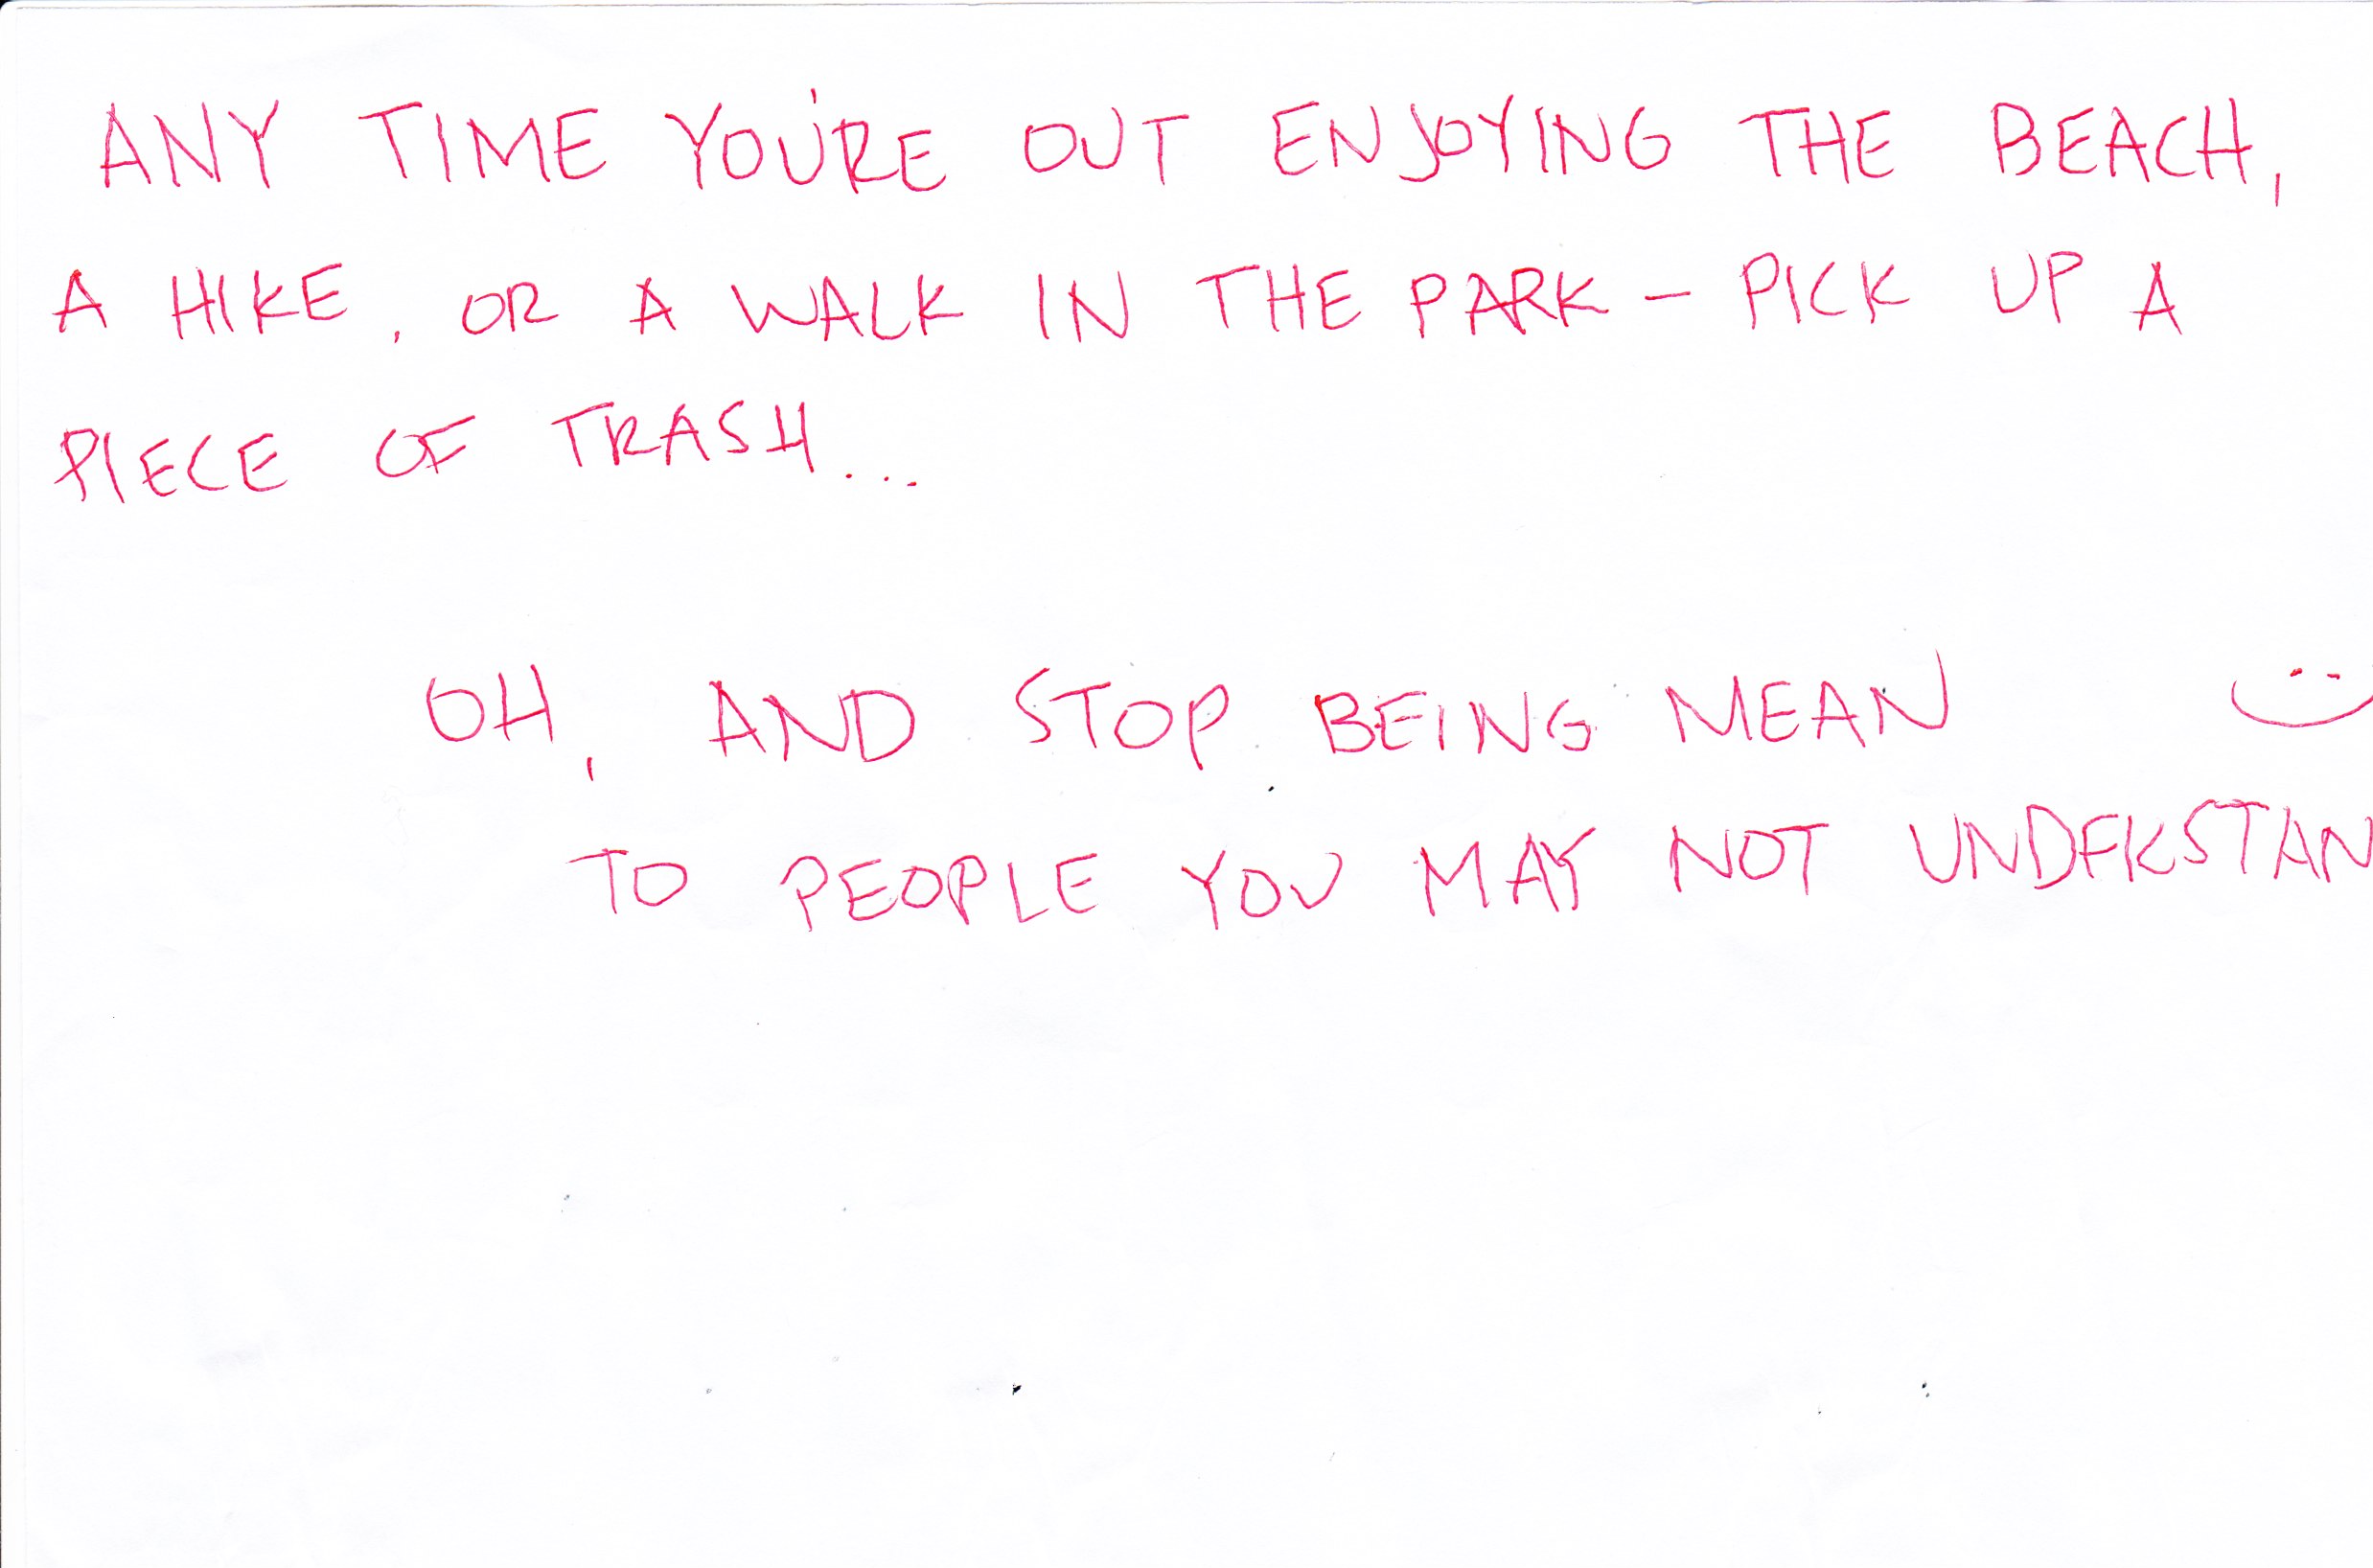 ANY TIME YOU'RE OUT ENJOYING THE BEACH,
A HIKE, OR A WALK IN THE PARK - PICK UP A
PIECE OF TRASH...
OH, AND STOP BEING MEAN
TO PEOPLE YOU MAY NOT UNDERSTAN